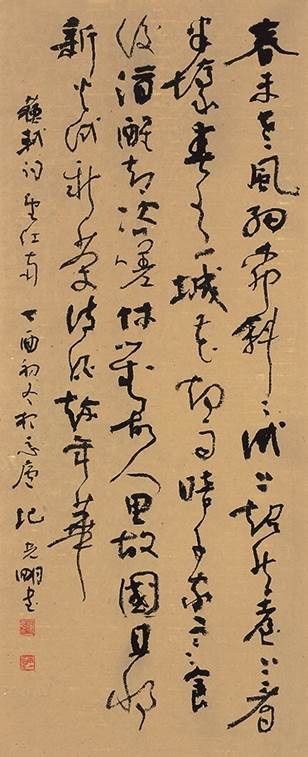 春未老風細柳斜〻試上超然臺上看
半壕春水一城花烟雨暗千家寒食
後酒醒却咨嗟休對故人思故國且將
新火試新茶詩酒趁年華
蘇軾詞望江南 丁酉初冬於廬 紀光明書